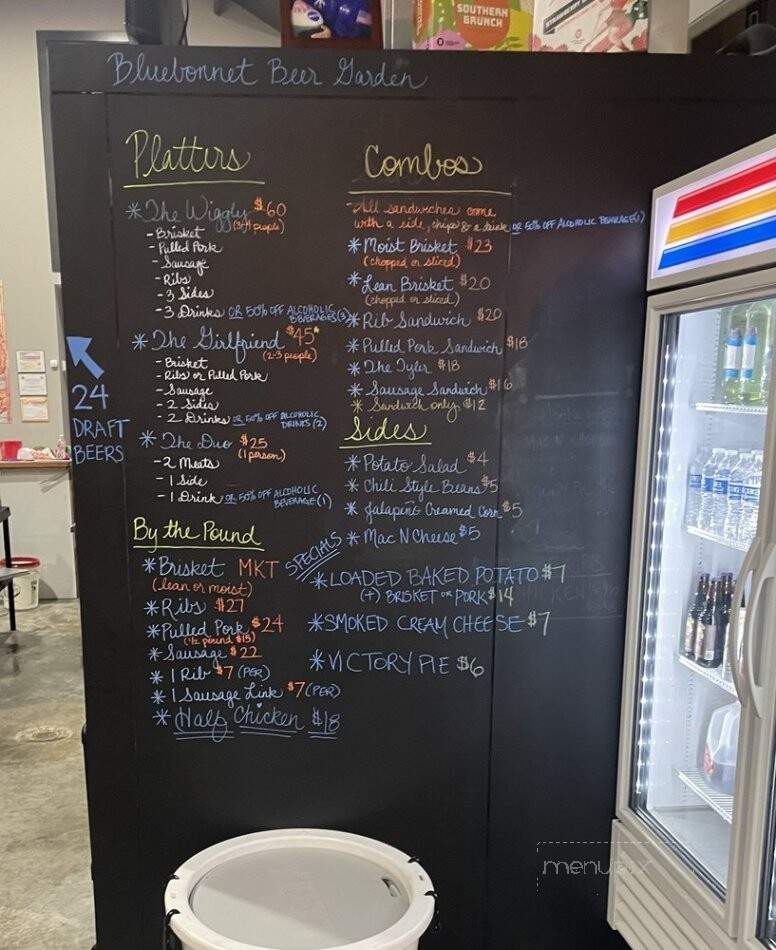 SOUTHERN
BRUNCH
Bluebonnet Beer Garden
Platters
* The Wiggly $60
(3-4 people)
- Brisket
- Pulled Pork
- Sausage
- Ribs
- 3 Sides
- 3 Drinks OR 50% OFF ALCOHOLIC
BEVERAGES (3)
* The Girlfriend $45*
(2-3 people)
- Brisket
- Ribs or Pulled Pork
- Sausage
- 2 Sides
- 2 Drinks OR 50% OFF ALCOHOLIC
DRINKS (2)
* The Duo $25
(1 person)
- 2 Meats
- 1 Side
- 1 Drink OR 50% OFF ALCOHOLIC
BEVERAGE (1)
24
DRAFT
BEERS
By the Pound
* Brisket MKT
(lean or moist)
* Ribs $27
* Pulled Pork $24
(1/2 pound $15)
* Sausage $22
* 1 Rib $7 (PER)
* 1 Sausage Link $7 (PER)
* Half Chicken $18
Combos
- All sandwiches come
with a side, chips & a drink OR 50% OFF ALCOHOLIC BEVERAGE(1)
* Moist Brisket $23
(chopped or sliced)
* Lean Brisket $20
(chopped or sliced)
* Rib Sandwich $20
* Pulled Pork Sandwich $18
* The Tyler $18
* Sausage Sandwich $16
* Sandwich only $12
Sides
* Potato Salad $4
* Chili Style Beans $5
* Jalapeño Creamed Corn $5
* Mac N Cheese $5
SPECIALS
* LOADED BAKED POTATO $7
(+) BRISKET OR PORK $14
* SMOKED CREAM CHEESE $7
* VICTORY PIE $6